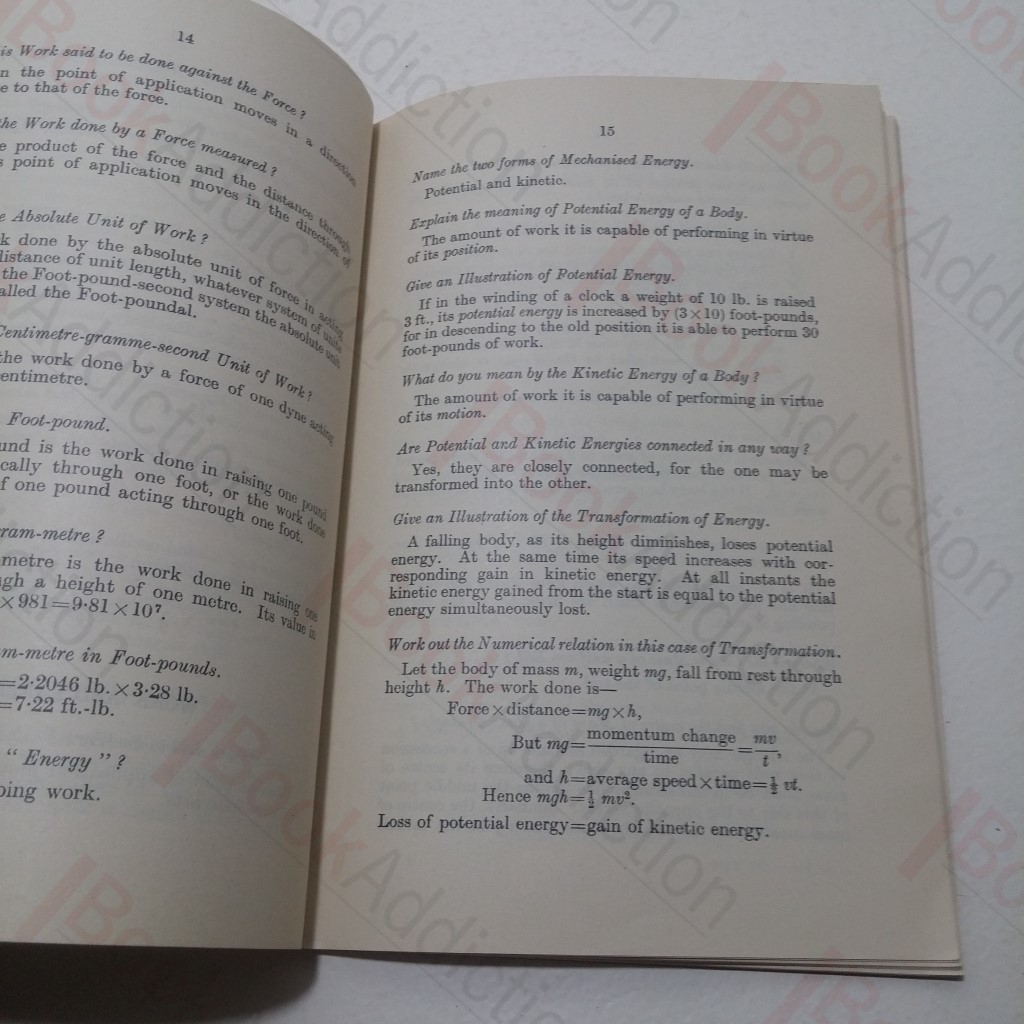 14
is Work said to be done against the Force ?
n the point of application moves in a direction
e to that of the force.
the Work done by a Force measured ?
e product of the force and the distance through
s point of application moves in the direction of
e Absolute Unit of Work ?
k done by the absolute unit of force in acting
distance of unit length, whatever system of units
the Foot-pound-second system the absolute unit
alled the Foot-poundal.
Centimetre-gramme-second Unit of Work ?
the work done by a force of one dyne acting
entimetre.
Foot-pound.
und is the work done in raising one pound
cally through one foot, or the work done
f one pound acting through one foot.
ram-metre ?
metre is the work done in raising one
gh a height of one metre. Its value is
×981=9·81×10⁷.
m-metre in Foot-pounds.
=2·2046 lb.×3·28 lb.
=7·22 ft.-lb.
" Energy " ?
oing work.
15
Name the two forms of Mechanised Energy.
Potential and kinetic.
Explain the meaning of Potential Energy of a Body.
The amount of work it is capable of performing in virtue
of its position.
Give an Illustration of Potential Energy.
If in the winding of a clock a weight of 10 lb. is raised
3 ft., its potential energy is increased by (3×10) foot-pounds,
for in descending to the old position it is able to perform 30
foot-pounds of work.
What do you mean by the Kinetic Energy of a Body ?
The amount of work it is capable of performing in virtue
of its motion.
Are Potential and Kinetic Energies connected in any way ?
Yes, they are closely connected, for the one may be
transformed into the other.
Give an Illustration of the Transformation of Energy.
A falling body, as its height diminishes, loses potential
energy. At the same time its speed increases with cor-
responding gain in kinetic energy. At all instants the
kinetic energy gained from the start is equal to the potential
energy simultaneously lost.
Work out the Numerical relation in this case of Transformation.
Let the body of mass m, weight mg, fall from rest through
height h. The work done is—
Force×distance=mg×h,
But mg=momentum change/time=mv/t,
and h=average speed×time=½ vt.
Hence mgh=½ mv².
Loss of potential energy=gain of kinetic energy.